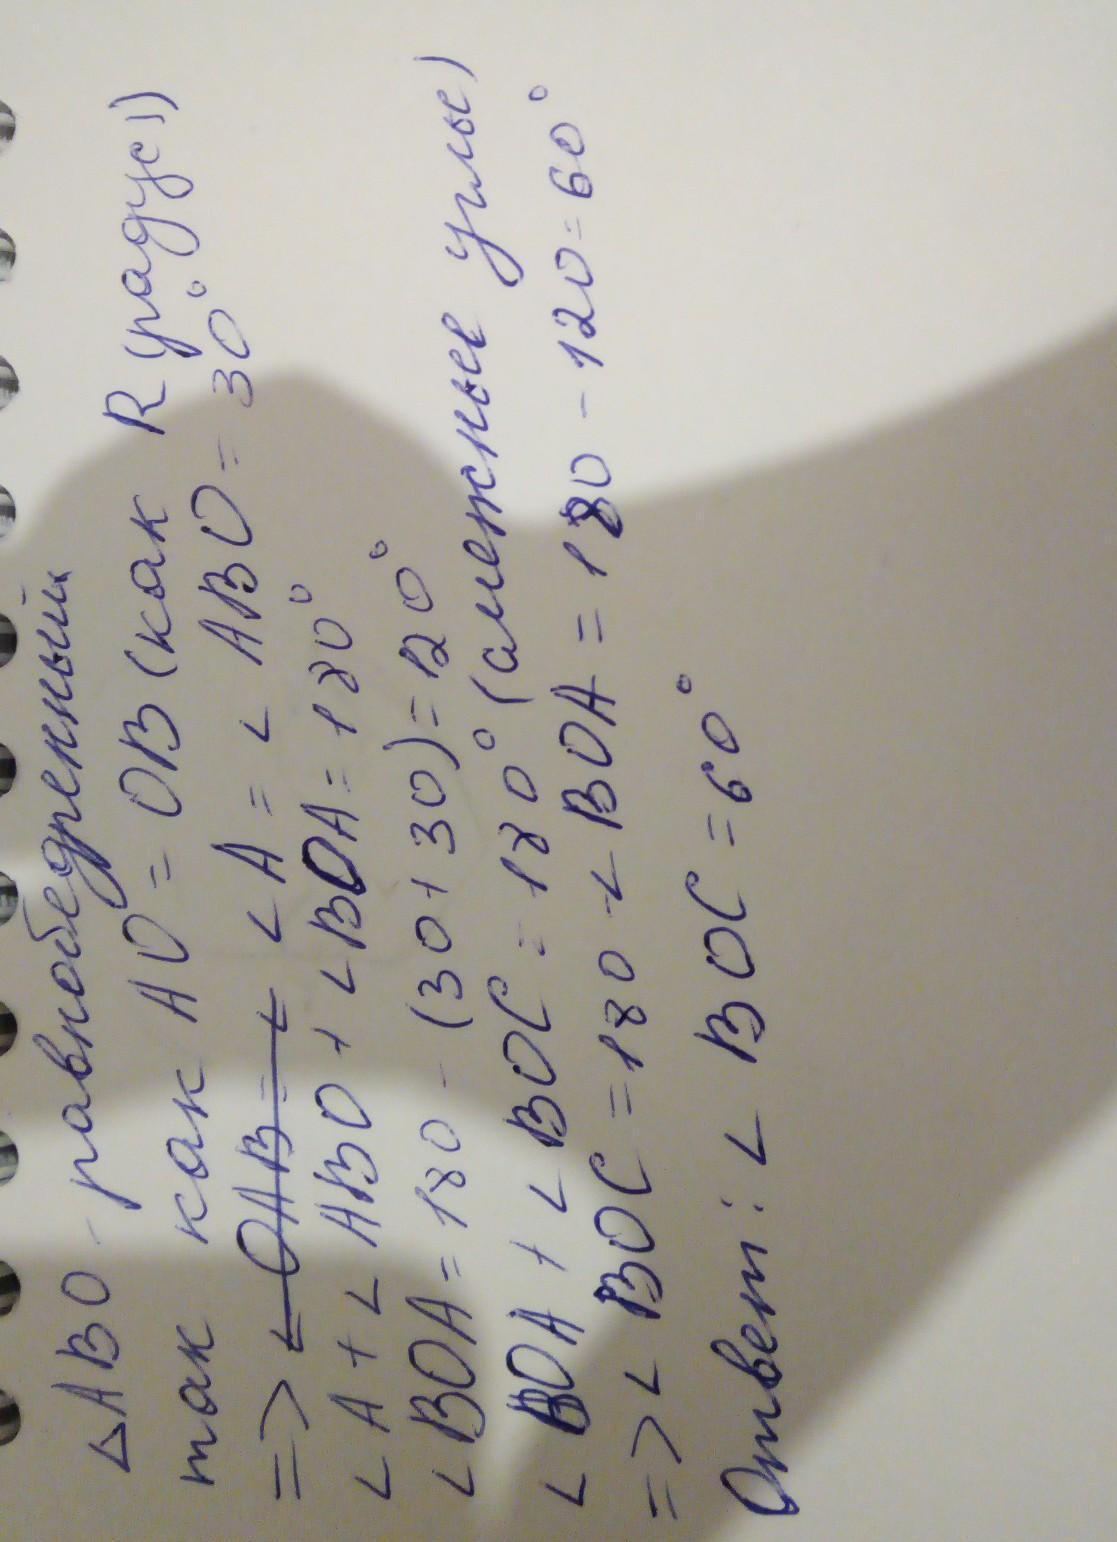 △ABO - равнобедренный
так как AO = OB (как R (радус))
=> ∠OAB = ∠ ∠A = ∠ABO = 30°
∠A + ∠ABO + ∠BOA = 180°
∠BOA = 180 - (30 + 30) = 120°
∠BOA + ∠BOC = 180° (смежные углы)
=> ∠BOC = 180 - ∠BOA = 180 - 120 = 60°
Ответ: ∠BOC = 60°